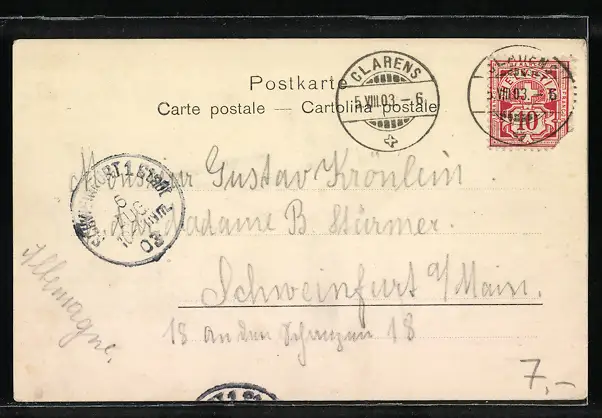 Postkarte
Carte postale — Cartolina postale
CLARENS
5.VIII.03.-6
CLARENS
5.VIII.03.-6
HELVETIA
10
SCHWEINFURT 1 Stadt
6
AUG
03
Monsieur Gustav Krönlein.
Madame B. Stürmer.
Schweinfurt a/Main.
18 an den Schanzen 18
Allemagne.
7,-